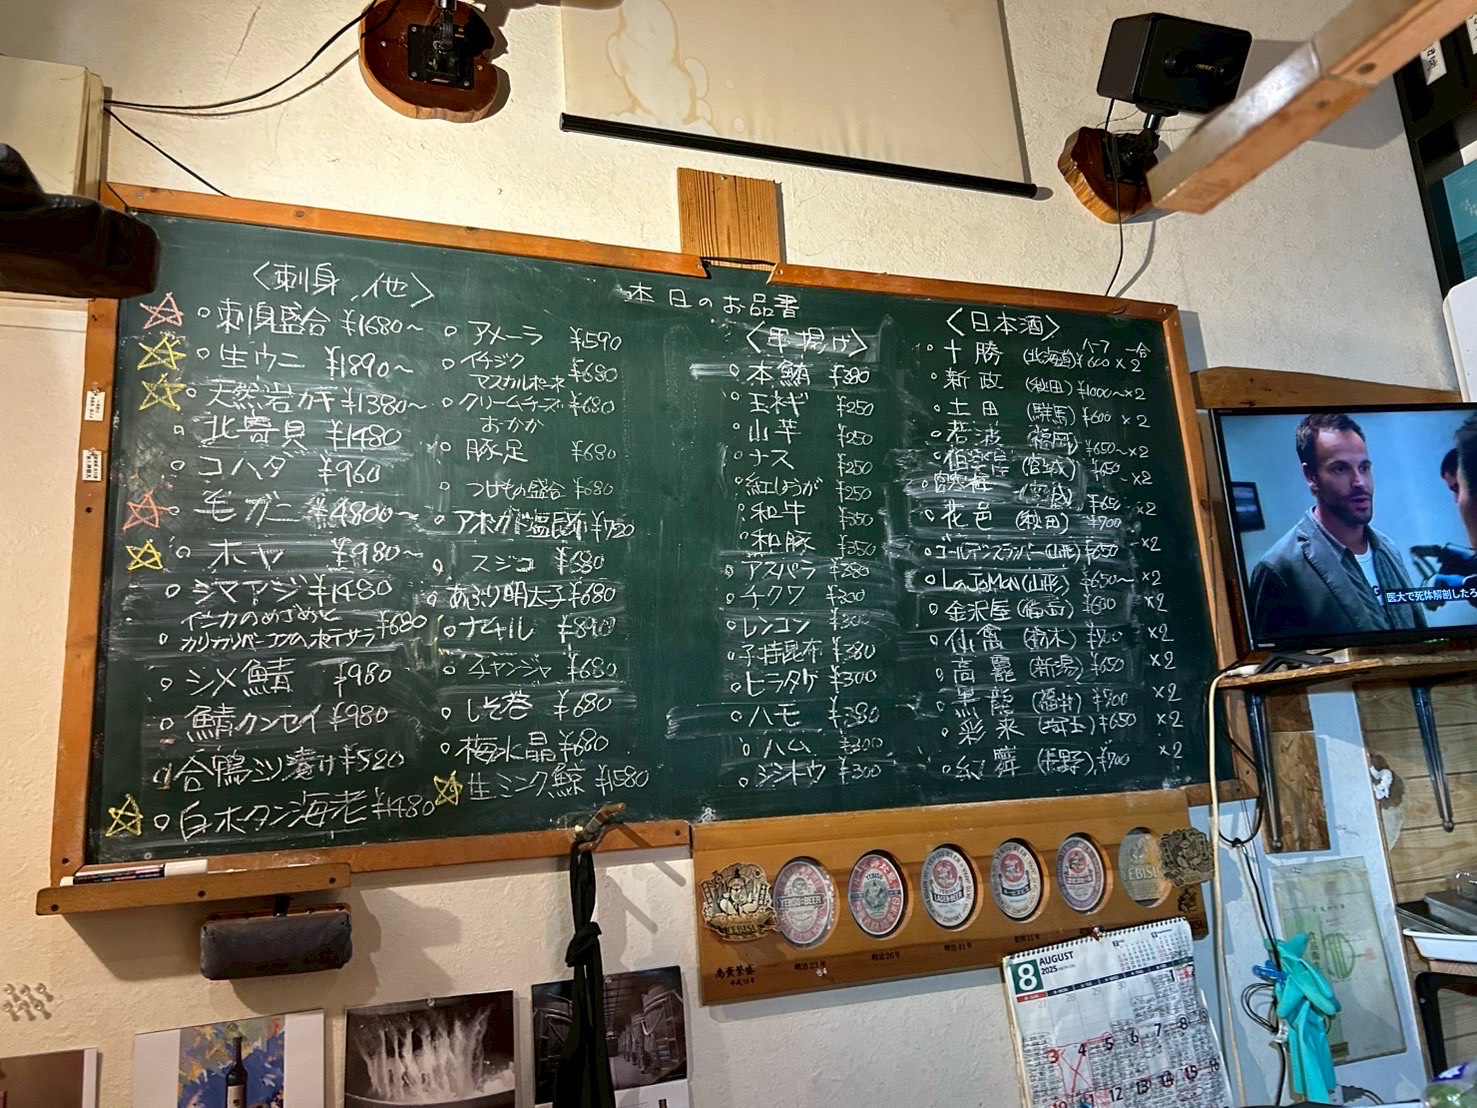 本日のお品書
〈刺身、他〉
○刺身盛合 ¥1680〜
○生ウニ ¥1890〜
○天然岩ガキ ¥1380〜
○北寄貝 ¥1480
○コハダ ¥960
○毛ガニ ¥4800〜
○ホヤ ¥980〜
○シマアジ ¥1480
○カリカリバーコンのポテサラ ¥680
○シメ鯖 ¥980
○鯖カンセイ ¥980
○合鴨ミソ漬け ¥520
○白ボタン海老 ¥1480
○アメーラ ¥590
○イチジク
マスカルポーネ ¥680
○クリームチーズ ¥680
おかか
○豚足 ¥680
○つけもの盛合 ¥680
○アボカド塩昆布 ¥720
○スジコ ¥680
○あぶり明太子 ¥680
○ナムル
○チャンジャ ¥680
○しそ巻 ¥680
○梅水晶 ¥680
○生ミンク鯨 ¥1580
〈串揚げ〉
○本鮪 ¥380
○玉ネギ ¥250
○山芋 ¥250
○ナス ¥250
○紅しょうが ¥250
○和牛 ¥350
○和豚 ¥350
○アスパラ ¥380
○チクワ ¥300
○レンコン ¥300
○子持昆布 ¥380
○ヒラタケ ¥300
○ハモ ¥380
○ハム ¥300
○シシトウ ¥300
〈日本酒〉
ハーフ 一合
○十勝 (北海道) ¥600 ×2
○新政 (秋田) ¥1000〜×2
○土田 (群馬) ¥600 ×2
○若波 (福岡) ¥650〜×2
(宮城) ¥650 ×2
(宮城) ¥650 ×2
○花邑 (秋田) ¥700
○ゴールデンスランバー (山形) ¥650 ×2
○La Jomon (山形) ¥650〜 ×2
○金沢屋 (福島) ¥600 ×2
○仙禽 (栃木) ¥700 ×2
○高龗 (新潟) ¥650 ×2
○黒龍 (福井) ¥700 ×2
○彩来 (埼玉) ¥650 ×2
(長野) ¥700 ×2
YEBISU
YEBISU BEER
LAGER BEER
YEBISU
商賣繁盛
平成18年
明治23年
明治26年
明治41年
昭和11年
8
AUGUST
2025
1 2
3 4 5 6 7 8
12 13 14 15
医大で死体解剖したろ
TOSHIBA